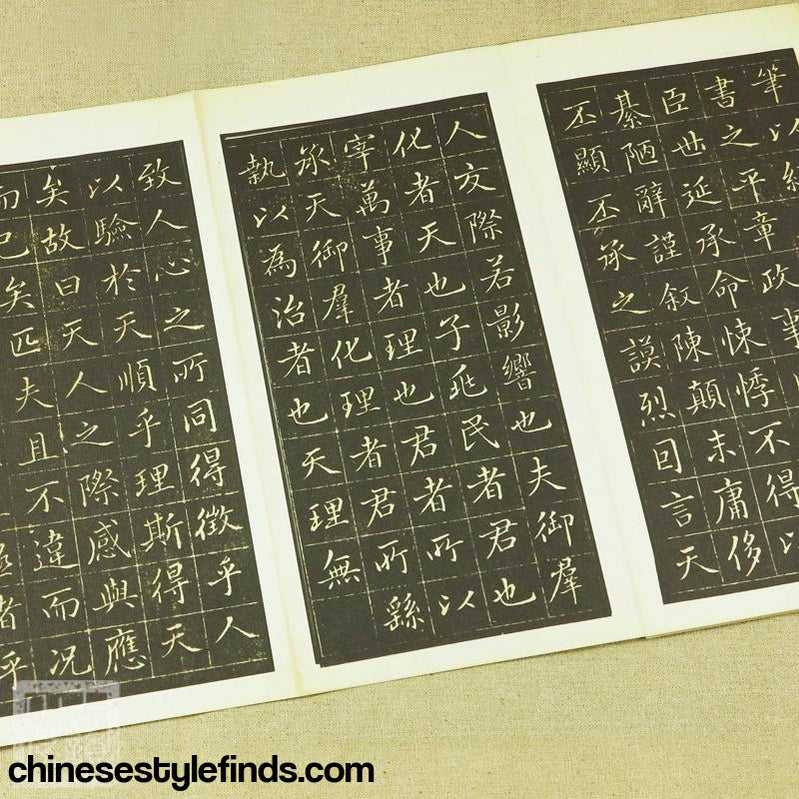 筆以
書之平章政事
臣世延承命悚悸不得以
綦陋辭謹叙陳顛末庸侈
丕顯丕承之謨烈回言天
人交際若影響也夫御羣
化者天也子兆民者君也
宰萬事者理也君者所以
承天御羣化理者君所繇
執以為治者也天理無
致人心之所同得徵乎人
以驗於天順乎理斯得天
矣故曰天人之際感與應
而已矣匹夫且不違而況
者乎
chinesestylefinds.com